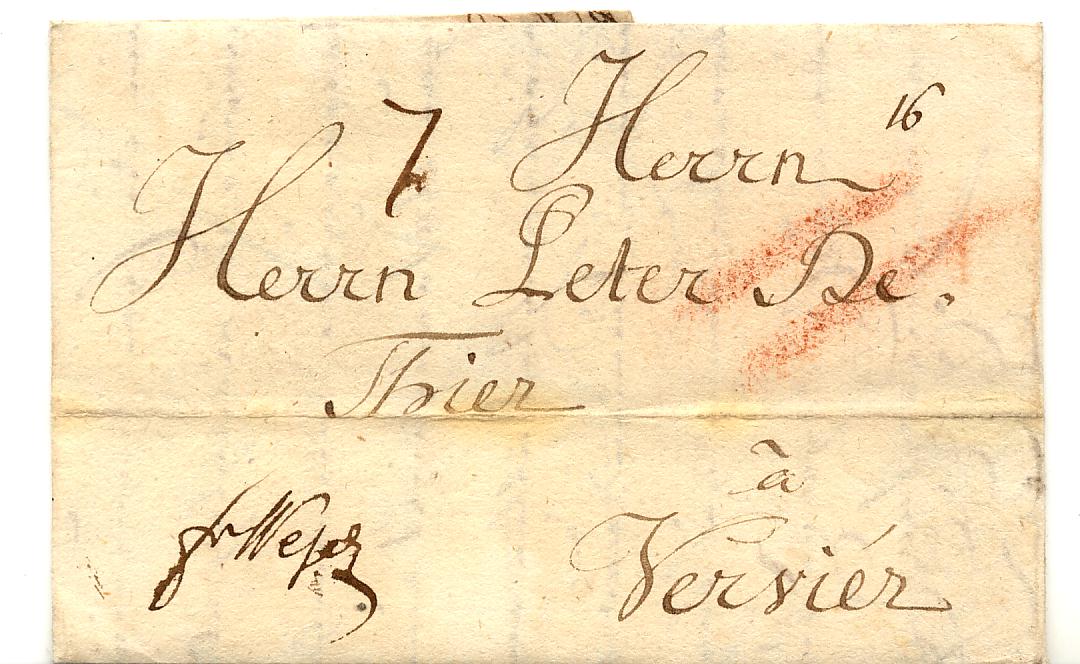 16
7 Herrn
Herrn Peter De.
Thier
à
fr Wesel Verviér